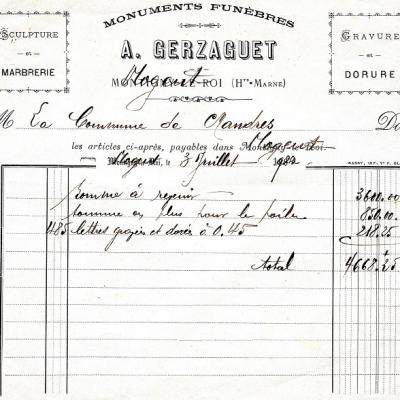 MONUMENTS FUNÈBRES
SCULPTURE
et
MARBRERIE
A. GERZAGUET
MONTIGNY-ROI (Hte-MARNE)
Nogent
GRAVURE
et
DORURE
M La Commune de Mandres Do
les articles ci-après, payables dans Montigny-le-Roi.
Nogent
Nogent, le 3 Juillet 1922
MASSY, IMP.
Somme à recevoir 3600.00
somme en plus pour le 850.00
485 lettres gravées et dorées à 0.45 218.25
total 4668.25